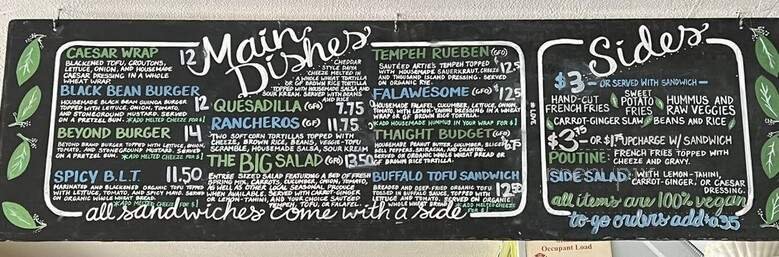 Main Dishes
CAESAR WRAP 12
BLACKENED TOFU, CROUTONS,
LETTUCE, ONION, AND HOUSEMADE
CAESAR DRESSING IN A WHOLE
WHEAT WRAP.
BLACK BEAN BURGER
HOUSEMADE BLACK BEAN QUINOA BURGER 12
TOPPED WITH LETTUCE, ONION, TOMATO,
AND STONEGROUND MUSTARD. SERVED
ON A PRETZEL BUN. *ADD MELTED CHEEZE FOR $1
BEYOND BURGER 14
BEYOND BURGER TOPPED WITH LETTUCE, ONION,
AND STONEGROUND MUSTARD. SERVED
ON A PRETZEL BUN. *ADD MELTED CHEEZE FOR $1
SPICY B.L.T. 11.50
MARINATED AND BLACKENED ORGANIC TOFU TOPPED
WITH LETTUCE, TOMATO, AND SPICY MAYO. SERVED
ON ORGANIC WHOLE WHEAT BREAD.
*ADD MELTED CHEEZE FOR $1
CHEDDAR
STYLE DAIYA
CHEEZE MELTED IN
A WHOLE WHEAT TORTILLA
OR GF BROWN RICE TORTILLA
TOPPED WITH HOUSE SALSA AND
SOUR KREAM. SERVED WITH BEANS
AND RICE
QUESADILLA (GFO) 7.75
RANCHEROS (GF) 11.75
TWO SOFT CORN TORTILLAS TOPPED WITH
CHEEZE, BROWN RICE, BEANS, VEGGIE-TOFU
SCRAMBLE, HOUSEMADE SALSA, SOUR KREAM
THE BIG SALAD (GF) 13.50
ENTREE SIZED SALAD FEATURING A BED OF FRESH
SPRING MIX, CARROTS, CUCUMBER, ONION, TOMATO,
AS WELL AS OTHER LOCAL SEASONAL PRODUCE
WHEN AVAILABLE. SERVED WITH CARROT-GINGER
OR LEMON-TAHINI, AND YOUR CHOICE SAUTEED
TEMPEH, TOFU, OR FALAFEL.
TEMPEH RUEBEN (GFO)
SAUTÉED ARTIE'S TEMPEH TOPPED $12.5
WITH HOUSEMADE SAUERKRAUT, CHEEZE
AND THOUSAND ISLAND DRESSING. SERVED
ON ORGANIC RYE.
FALAWESOME (GFO) $12.5
HOUSEMADE FALAFEL, CUCUMBER, LETTUCE, ONION,
TOMATO, WITH LEMON-TAHINI DRESSING IN A WHEAT
WRAP OR GF BROWN RICE TORTILLA.
*ADD HOUSEMADE HUMMUS IN YOUR WRAP FOR $1
THAIGHT BUDGET (GFO)
HOUSEMADE PEANUT BUTTER, CUCUMBER, SLICED 6.75
BELL PEPPERS, SRIRACHA, AND CILANTRO.
SERVED ON ORGANIC WHOLE WHEAT BREAD OR
BROWN RICE TORTILLA.
BUFFALO TOFU SANDWICH
BREADED AND DEEP-FRIED ORGANIC TOFU 12.50
TOSSED IN BUFFALO SAUCE, TOPPED WITH
LETTUCE AND TOMATO, SERVED ON ORGANIC
WHOLE WHEAT BREAD. *ADD MELTED CHEEZE
FOR $1
all sandwiches come with a side
Sides
$3 - OR SERVED WITH SANDWICH -
HAND-CUT FRENCH FRIES
SWEET POTATO FRIES
HUMMUS AND RAW VEGGIES
CARROT-GINGER SLAW BEANS AND RICE
$3.75 - OR $1.75 UPCHARGE W/ SANDWICH
POUTINE FRENCH FRIES TOPPED WITH
CHEEZE AND GRAVY.
SIDE SALAD WITH LEMON-TAHINI,
CARROT-GINGER, OR CAESAR
DRESSING.
all items are 100% vegan
to-go orders add $0.35
Occupant Load